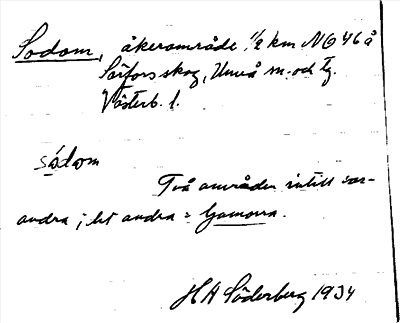 Sodom, åkerområde 1/2 km NO 46 å
Sörfors skog, Umeå sn. och tg.
Västerb. l.
sódom
Två områden intill var-
andra; det andra = Gomorra.
HA Söderberg 1934